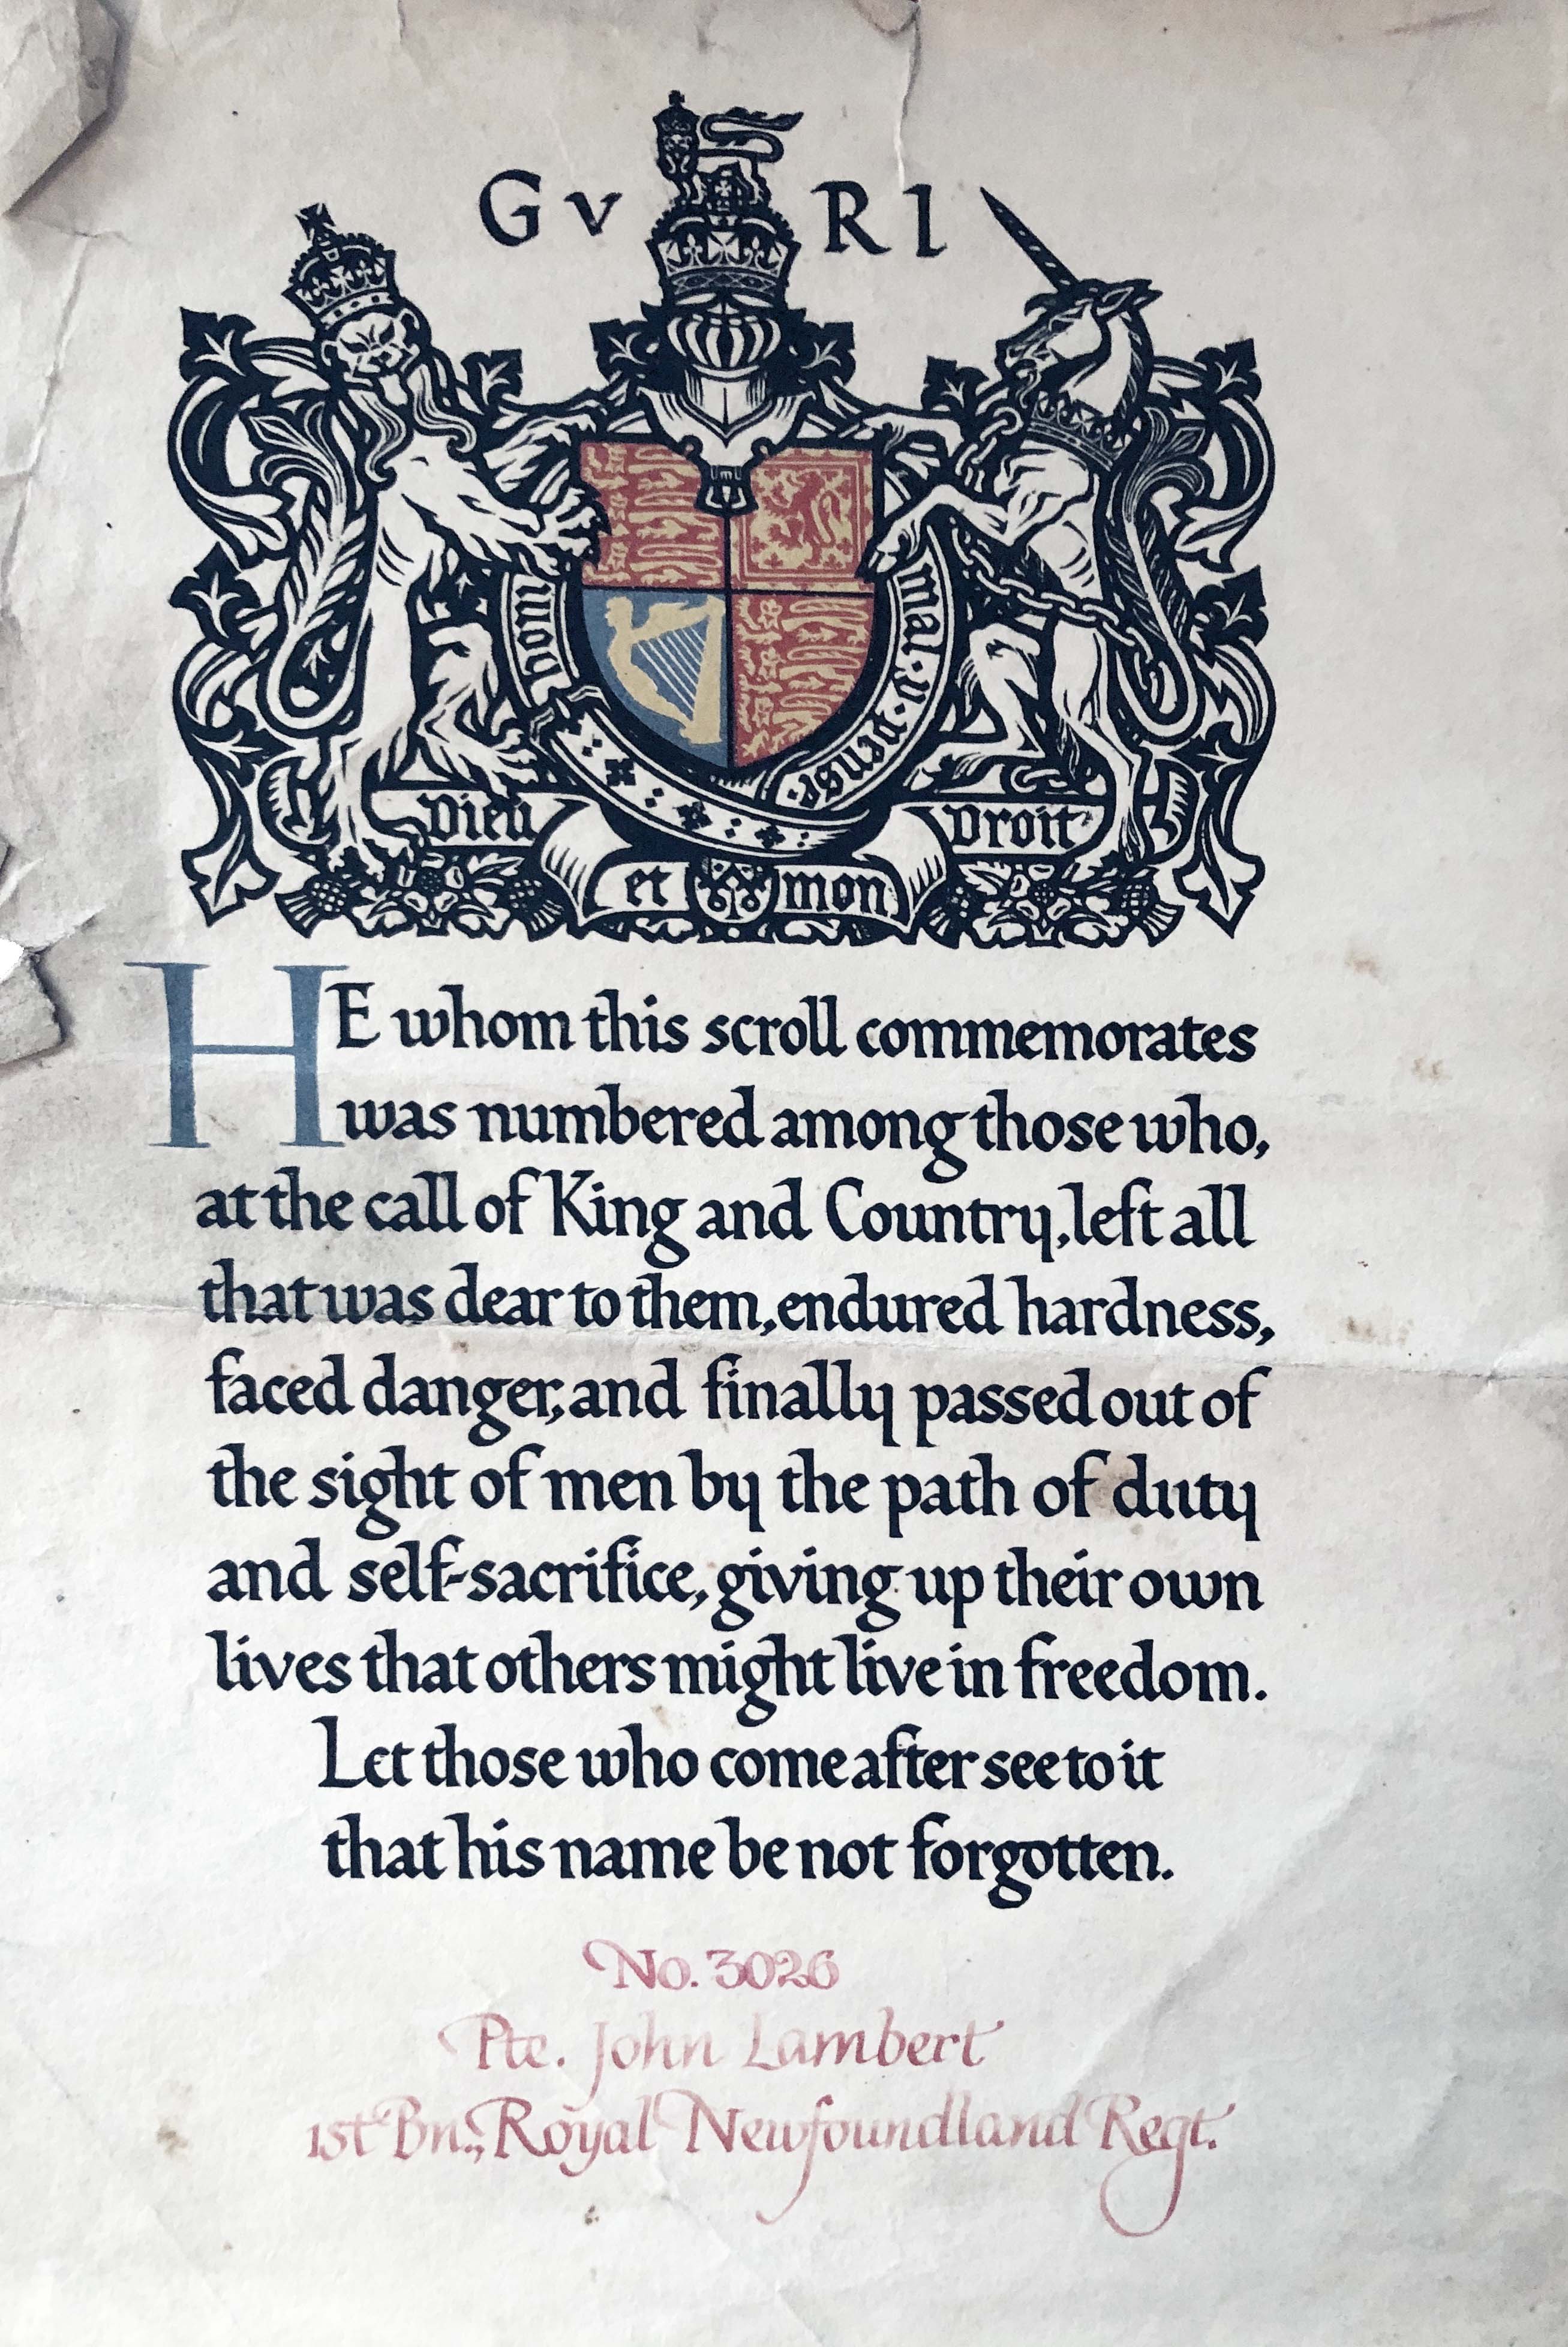 G V R I
honi
mal · y · pense ·
Dieu
et mon
Droit
HE whom this scroll commemorates
was numbered among those who,
at the call of King and Country, left all
that was dear to them, endured hardness,
faced danger, and finally passed out of
the sight of men by the path of duty
and self-sacrifice, giving up their own
lives that others might live in freedom.
Let those who come after see to it
that his name be not forgotten.
No. 3026
Pte. John Lambert
1st Bn., Royal Newfoundland Regt.